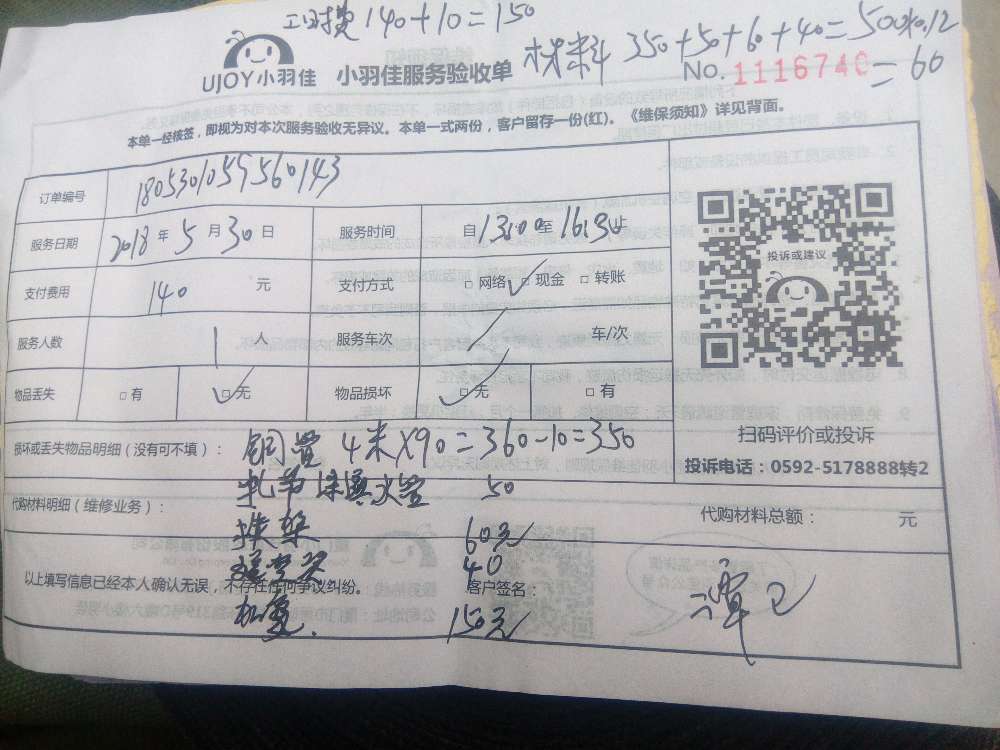 工时费 140+10=150
材料 350+50+60+40=500×0.12
=60
UJOY小羽佳 小羽佳服务验收单
No. 1116740
本单一经核签，即视为对本次服务验收无异议。本单一式两份，客户留存一份(红)。《维保须知》详见背面。
订单编号 1805301059560143
服务日期 2018 年 5 月 30 日 服务时间 自 1300 至 1613 止
支付费用 140 元 支付方式 □ 网络 ✓ □ 现金 □ 转账
服务人数 1 人 服务车次 / 车/次
物品丢失 □ 有 ✓ □ 无 物品损坏 ✓ □ 无 □ 有
投诉或建议
扫码评价或投诉
投诉电话：0592-5178888转2
损坏或丢失物品明细（没有可不填）： 铜管 4米×90=360-10=350
水管 50
代购材料明细（维修业务）：
代购材料总额： 元
60元
40
以上填写信息已经本人确认无误，不存在任何争议纠纷。 客户签名：
150元